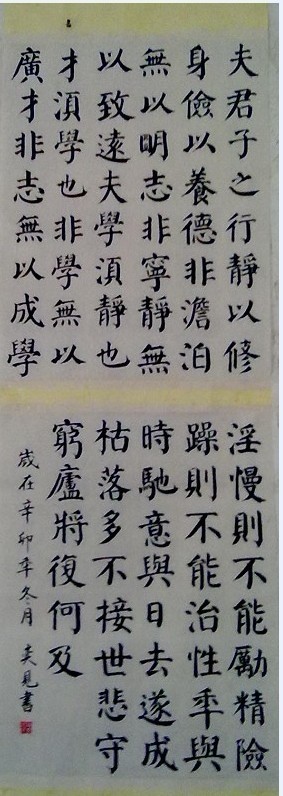 夫君子之行靜以修
身儉以養德非澹泊
無以明志非寧靜無
以致遠夫學湏靜也
才湏學也非學無以
廣才非志無以成學
淫慢則不能勵精險
躁則不能治性年與
時馳意與日去遂成
枯落多不接世悲守
窮廬將復何及
歲在辛卯年冬月 見書